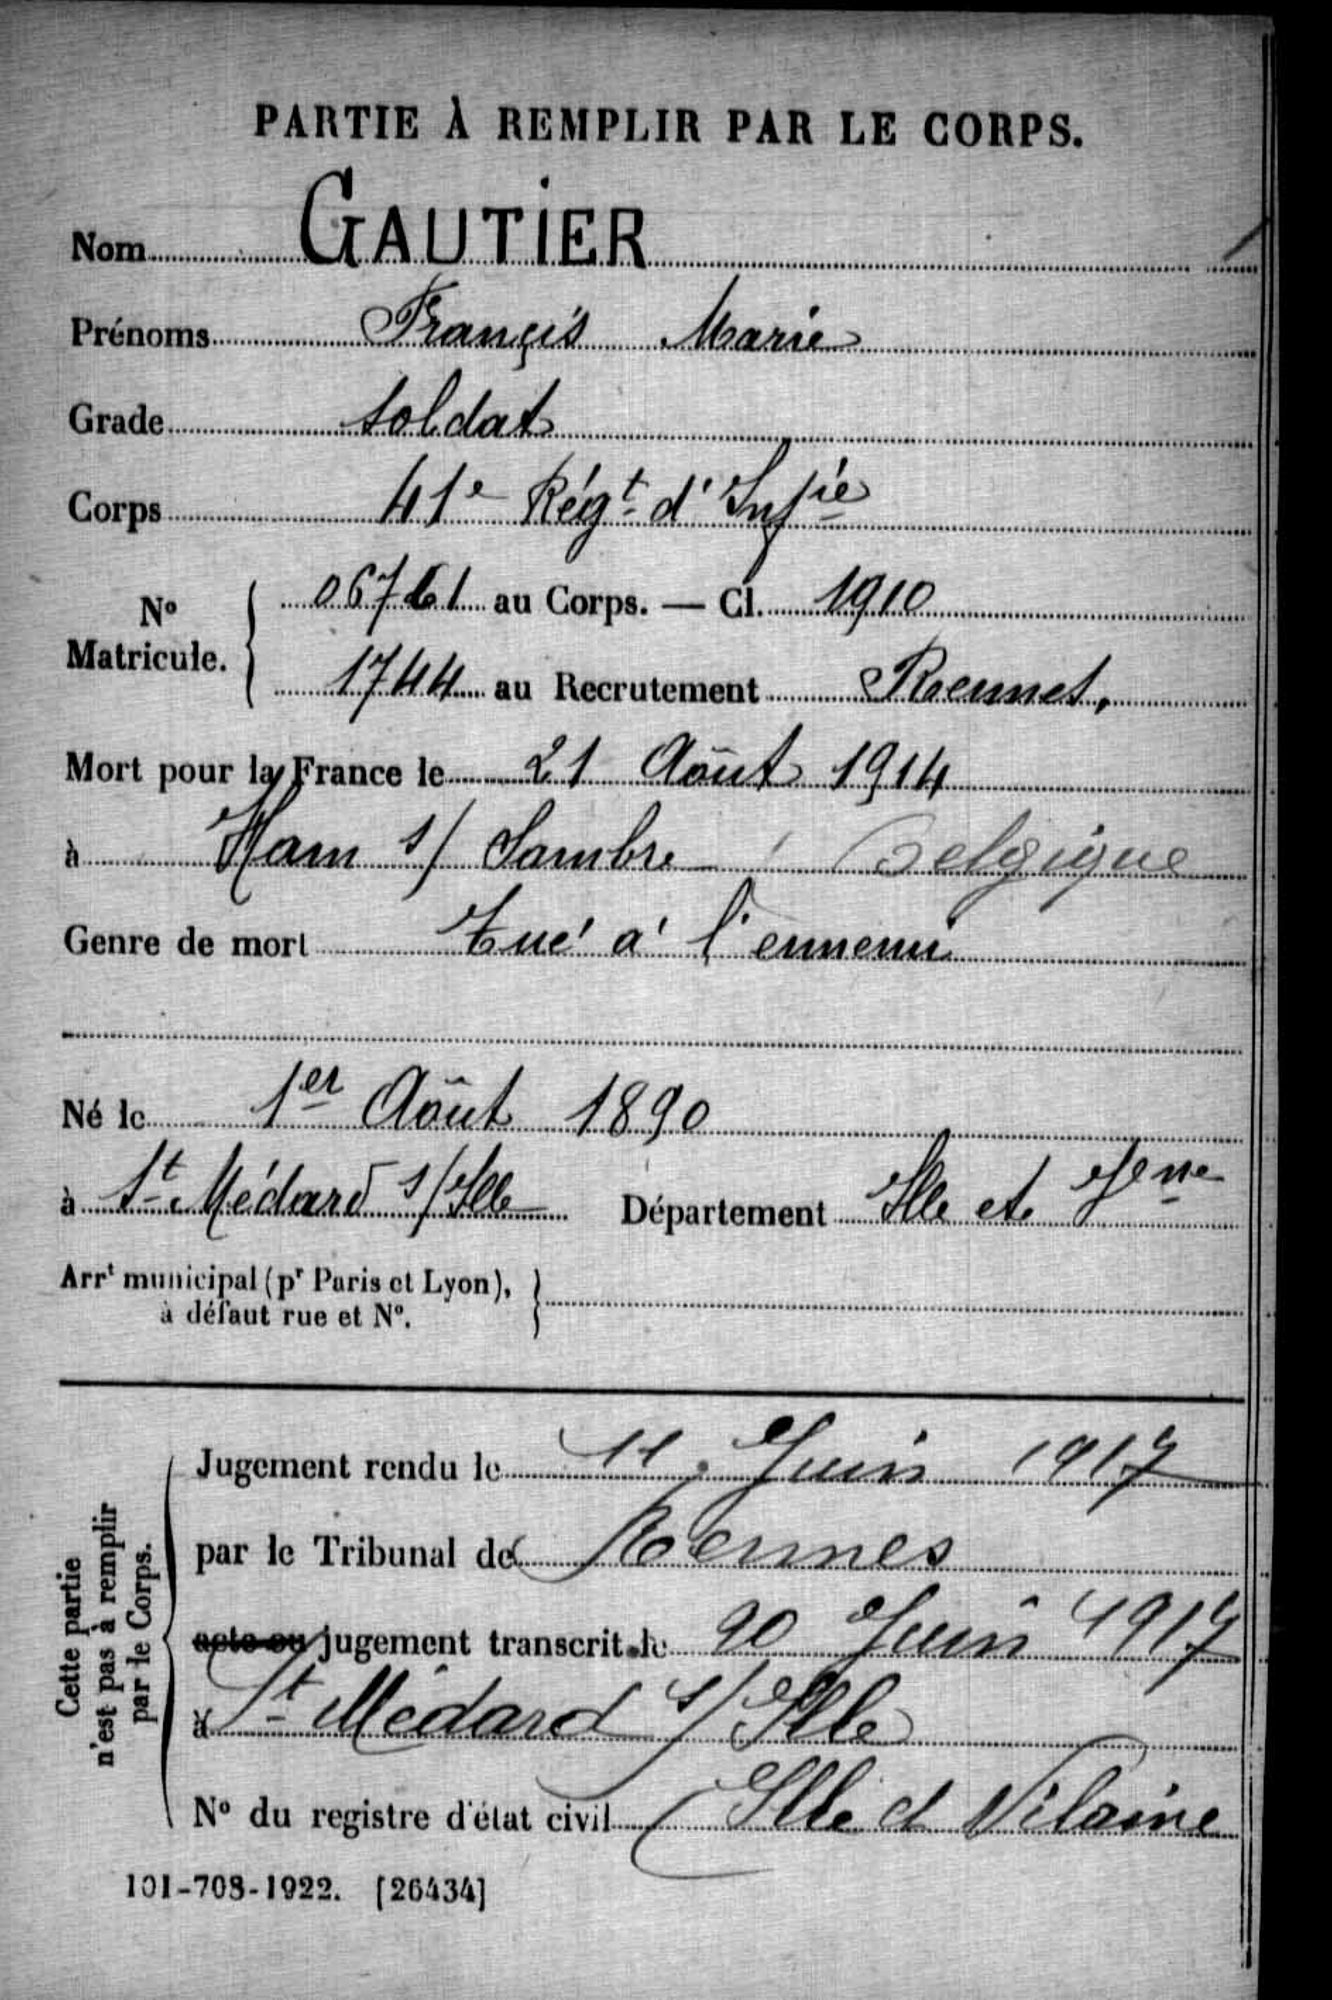 PARTIE À REMPLIR PAR LE CORPS.
Nom GAUTIER
Prénoms Françis Marie
Grade soldat
Corps 41e Régt d'Infie
No Matricule. { 06761 au Corps. — Cl. 1910
1744 au Recrutement Rennes.
Mort pour la France le 21 Août 1914
à Ham s/ Sambre Belgique
Genre de mort tué à l'ennemi
Né le 1er Août 1890
à St Médard s/Ille Département Ille et Vne
Arrt municipal (pr Paris et Lyon),
à défaut rue et No.
Cette partie
n'est pas à remplir
par le Corps.
Jugement rendu le 11 Juin 1917
par le Tribunal de Rennes
acte ou jugement transcrit le 20 Juin 1917
à St Médard s/ Ille
No du registre d'état civil (Ille et Vilaine
101-708-1922. [26434]